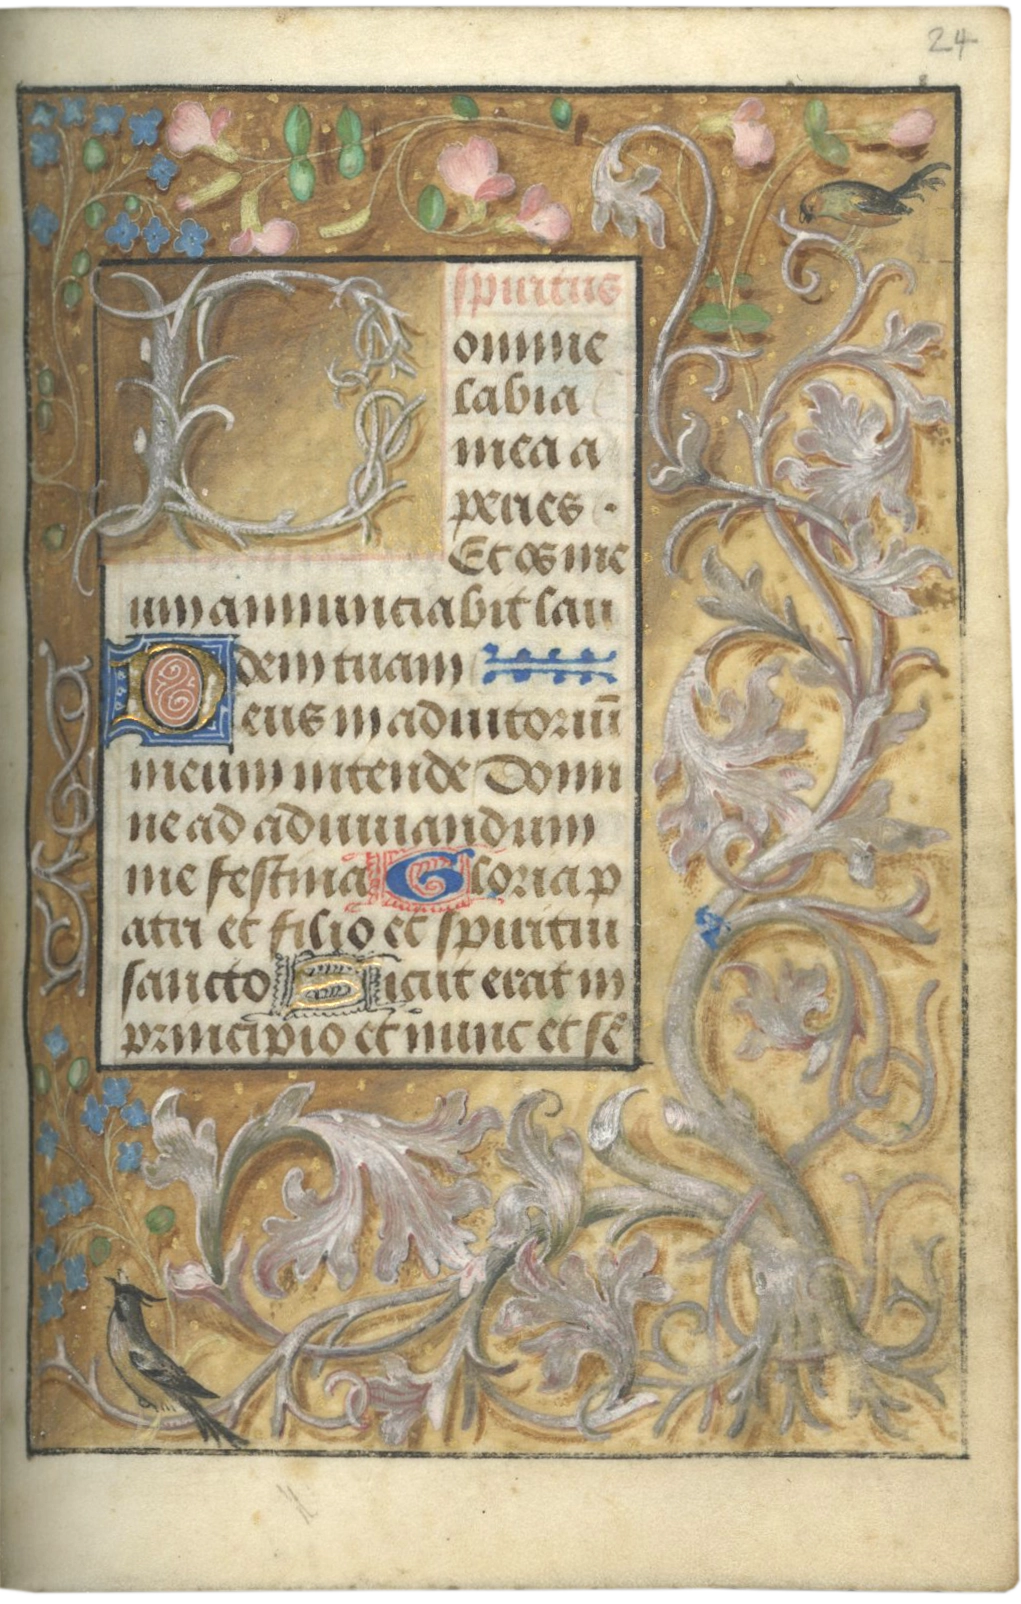 24
spiritus
Domine
labia
mea a
peries ·
Et os me
um annunciabit lau
dem tuam
Deus in adiutoriū
meum intende Domi
ne ad adiuuandum
me festina Gloria p
atri et filio et spiritui
sancto Sicut erat in
principio et nunc et sē